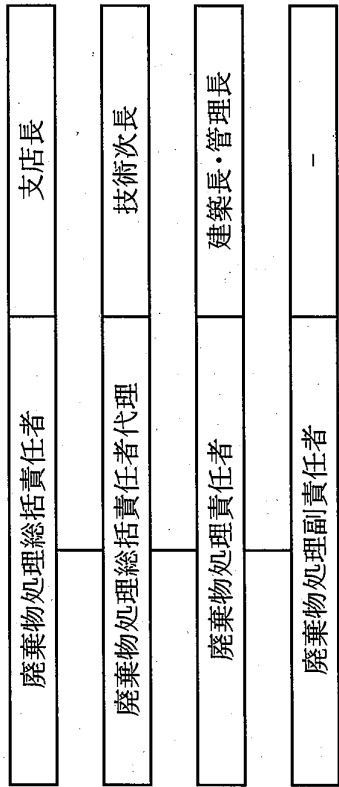 廃棄物処理総括責任者 支店長
廃棄物処理総括責任者代理 技術次長
廃棄物処理責任者 建築長・管理長
廃棄物処理副責任者 －